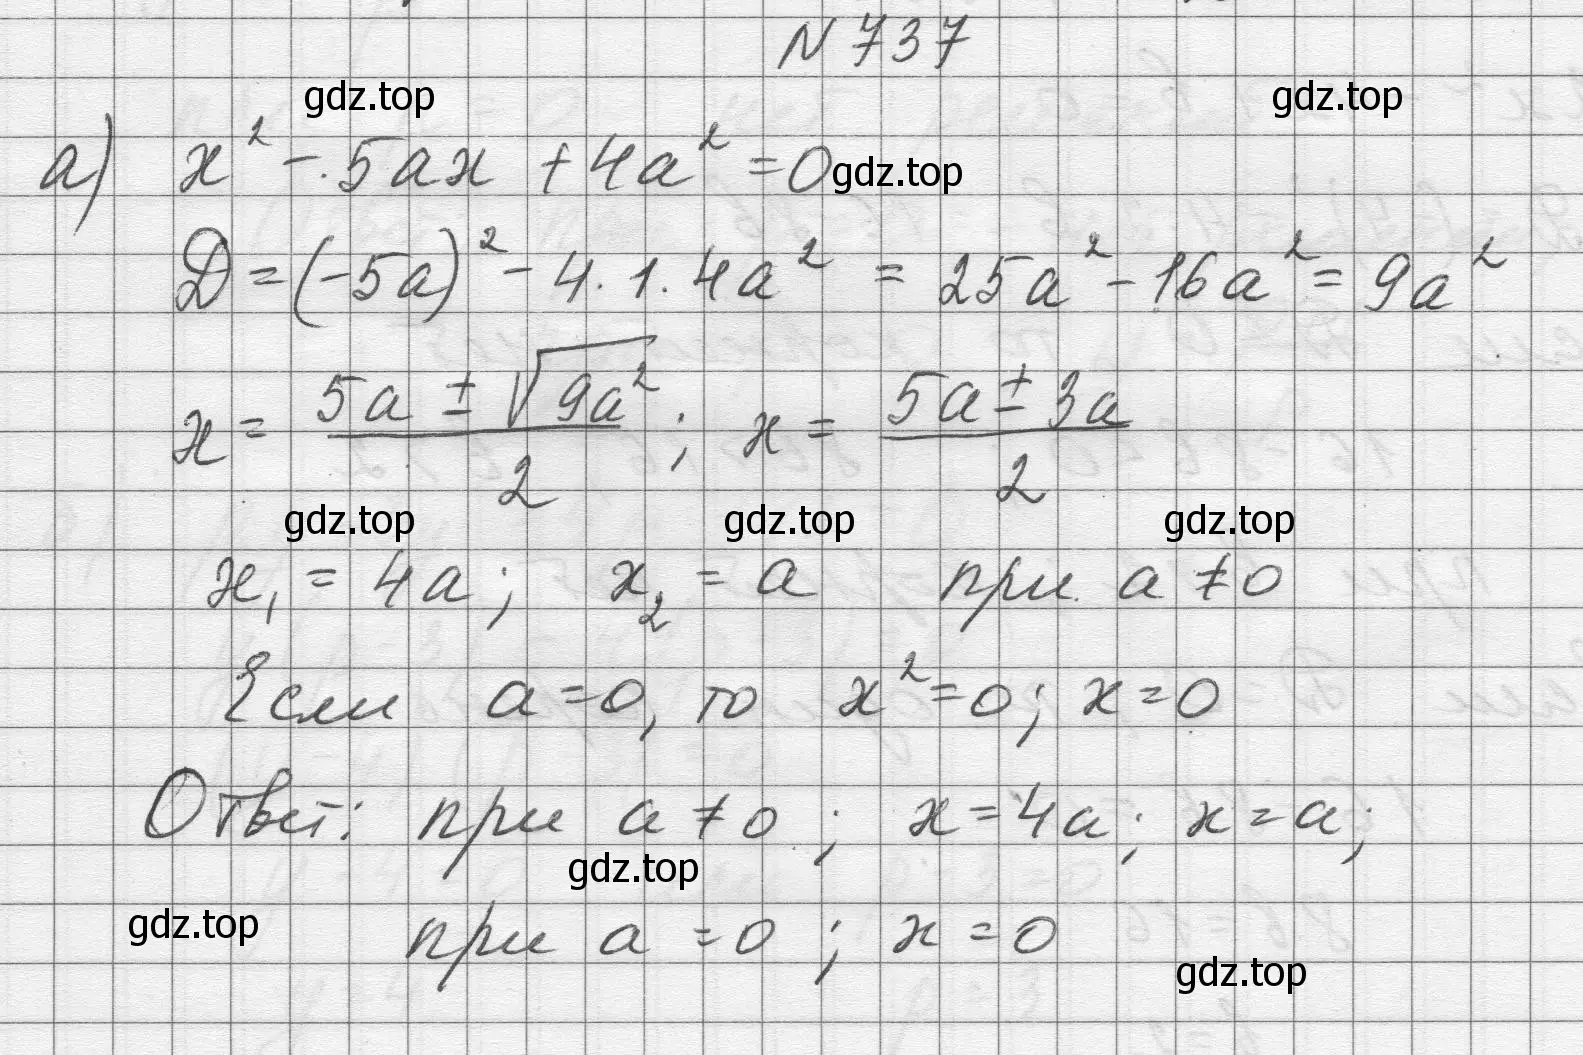 N 737
gdz.top gdz.top
а) x² - 5ax + 4a² = 0 gdz.top
D = (-5a)² - 4·1·4a² = 25a² - 16a² = 9a²
x = (5a ± √9a²)/2 ; x = (5a ± 3a)/2
gdz.top gdz.top gdz.top
x₁ = 4a; x₂ = a при a ≠ 0
Если a = 0, то x² = 0; x = 0
Ответ: при a ≠ 0 ; x = 4a; x = a;
gdz.top
gdz.top при a = 0 ; x = 0
gdz.top